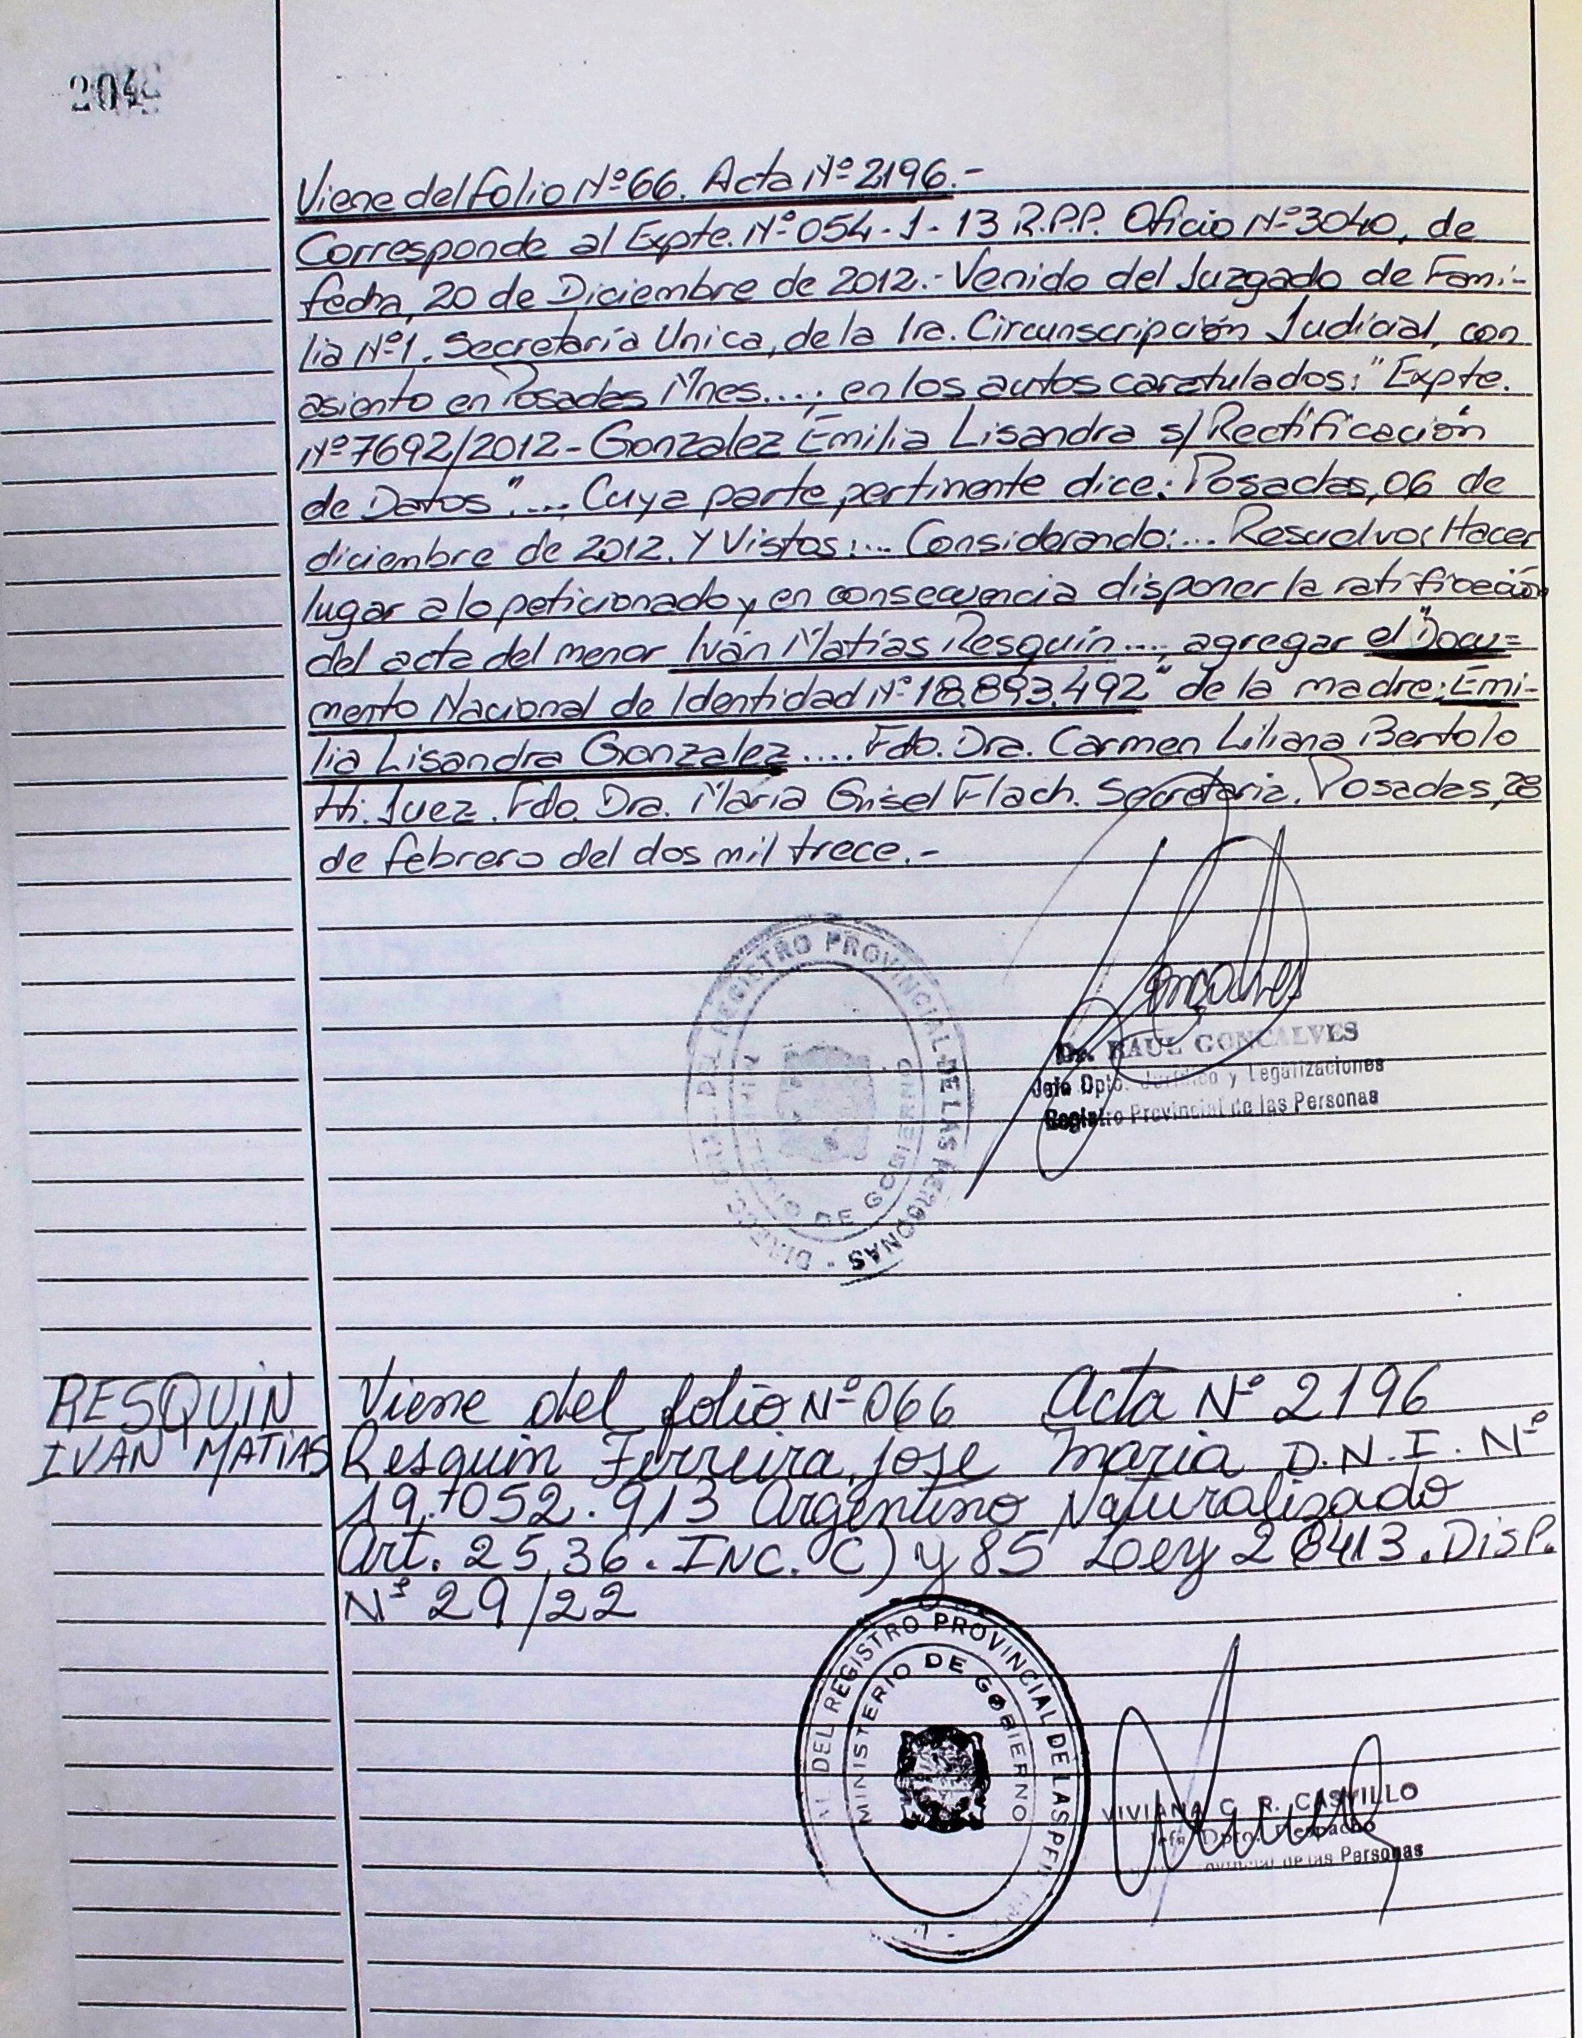 204
Viene del folio Nº 66. Acta Nº 2196.-
Corresponde al Expte. Nº 054-1-13 R.P.P. Oficio Nº 3040, de
fecha, 20 de Diciembre de 2012.- Venido del Juzgado de Fami-
lia Nº 1. Secretaría Unica, de la 1ra. Circunscripción Judicial, con
asiento en Posadas Mnes....; en los autos caratulados: "Expte.
Nº 7692/2012 - Gonzalez Emilia Lisandra s/ Rectificación
de Datos".... Cuya parte pertinente dice: Posadas, 06 de
diciembre de 2012. Y Vistos:... Considerando:... Resuelvo: Hacer
lugar a lo peticionado y en consecuencia disponer la ratificación
del acta del menor Iván Matías Resquín ...., agregar el "Docu=
mento Nacional de Identidad Nº 18.893.492" de la madre: Emi-
lia Lisandra Gonzalez .... Fdo. Dra. Carmen Liliana Bertolo
Hi. Juez. Fdo. Dra. María Grisel Flach. Secretaria. Posadas, 28
de febrero del dos mil trece.-
DEL REGISTRO PROVINCIAL DE LAS PERSONAS
MINISTERIO DE GOBIERNO
Goncalves
Dr. RAUL GONCALVES
Jefe Dpto. Jurídico y Legalizaciones
Registro Provincial de las Personas
RESQUIN
IVAN MATIAS
Viene del folio Nº 066 Acta Nº 2196
Resquin Ferreira, Jose Maria D.N.I. Nº
19.052.913 Argentino Naturalizado
Art. 25, 36. INC. C) y 85 Ley 26413. Disp.
Nº 29/22
DEL REGISTRO PROVINCIAL DE LAS
MINISTERIO DE GOBIERNO
VIVIANA C. R. CASVILLO
Jefa Dpto. Despacho
Provincial de las Personas